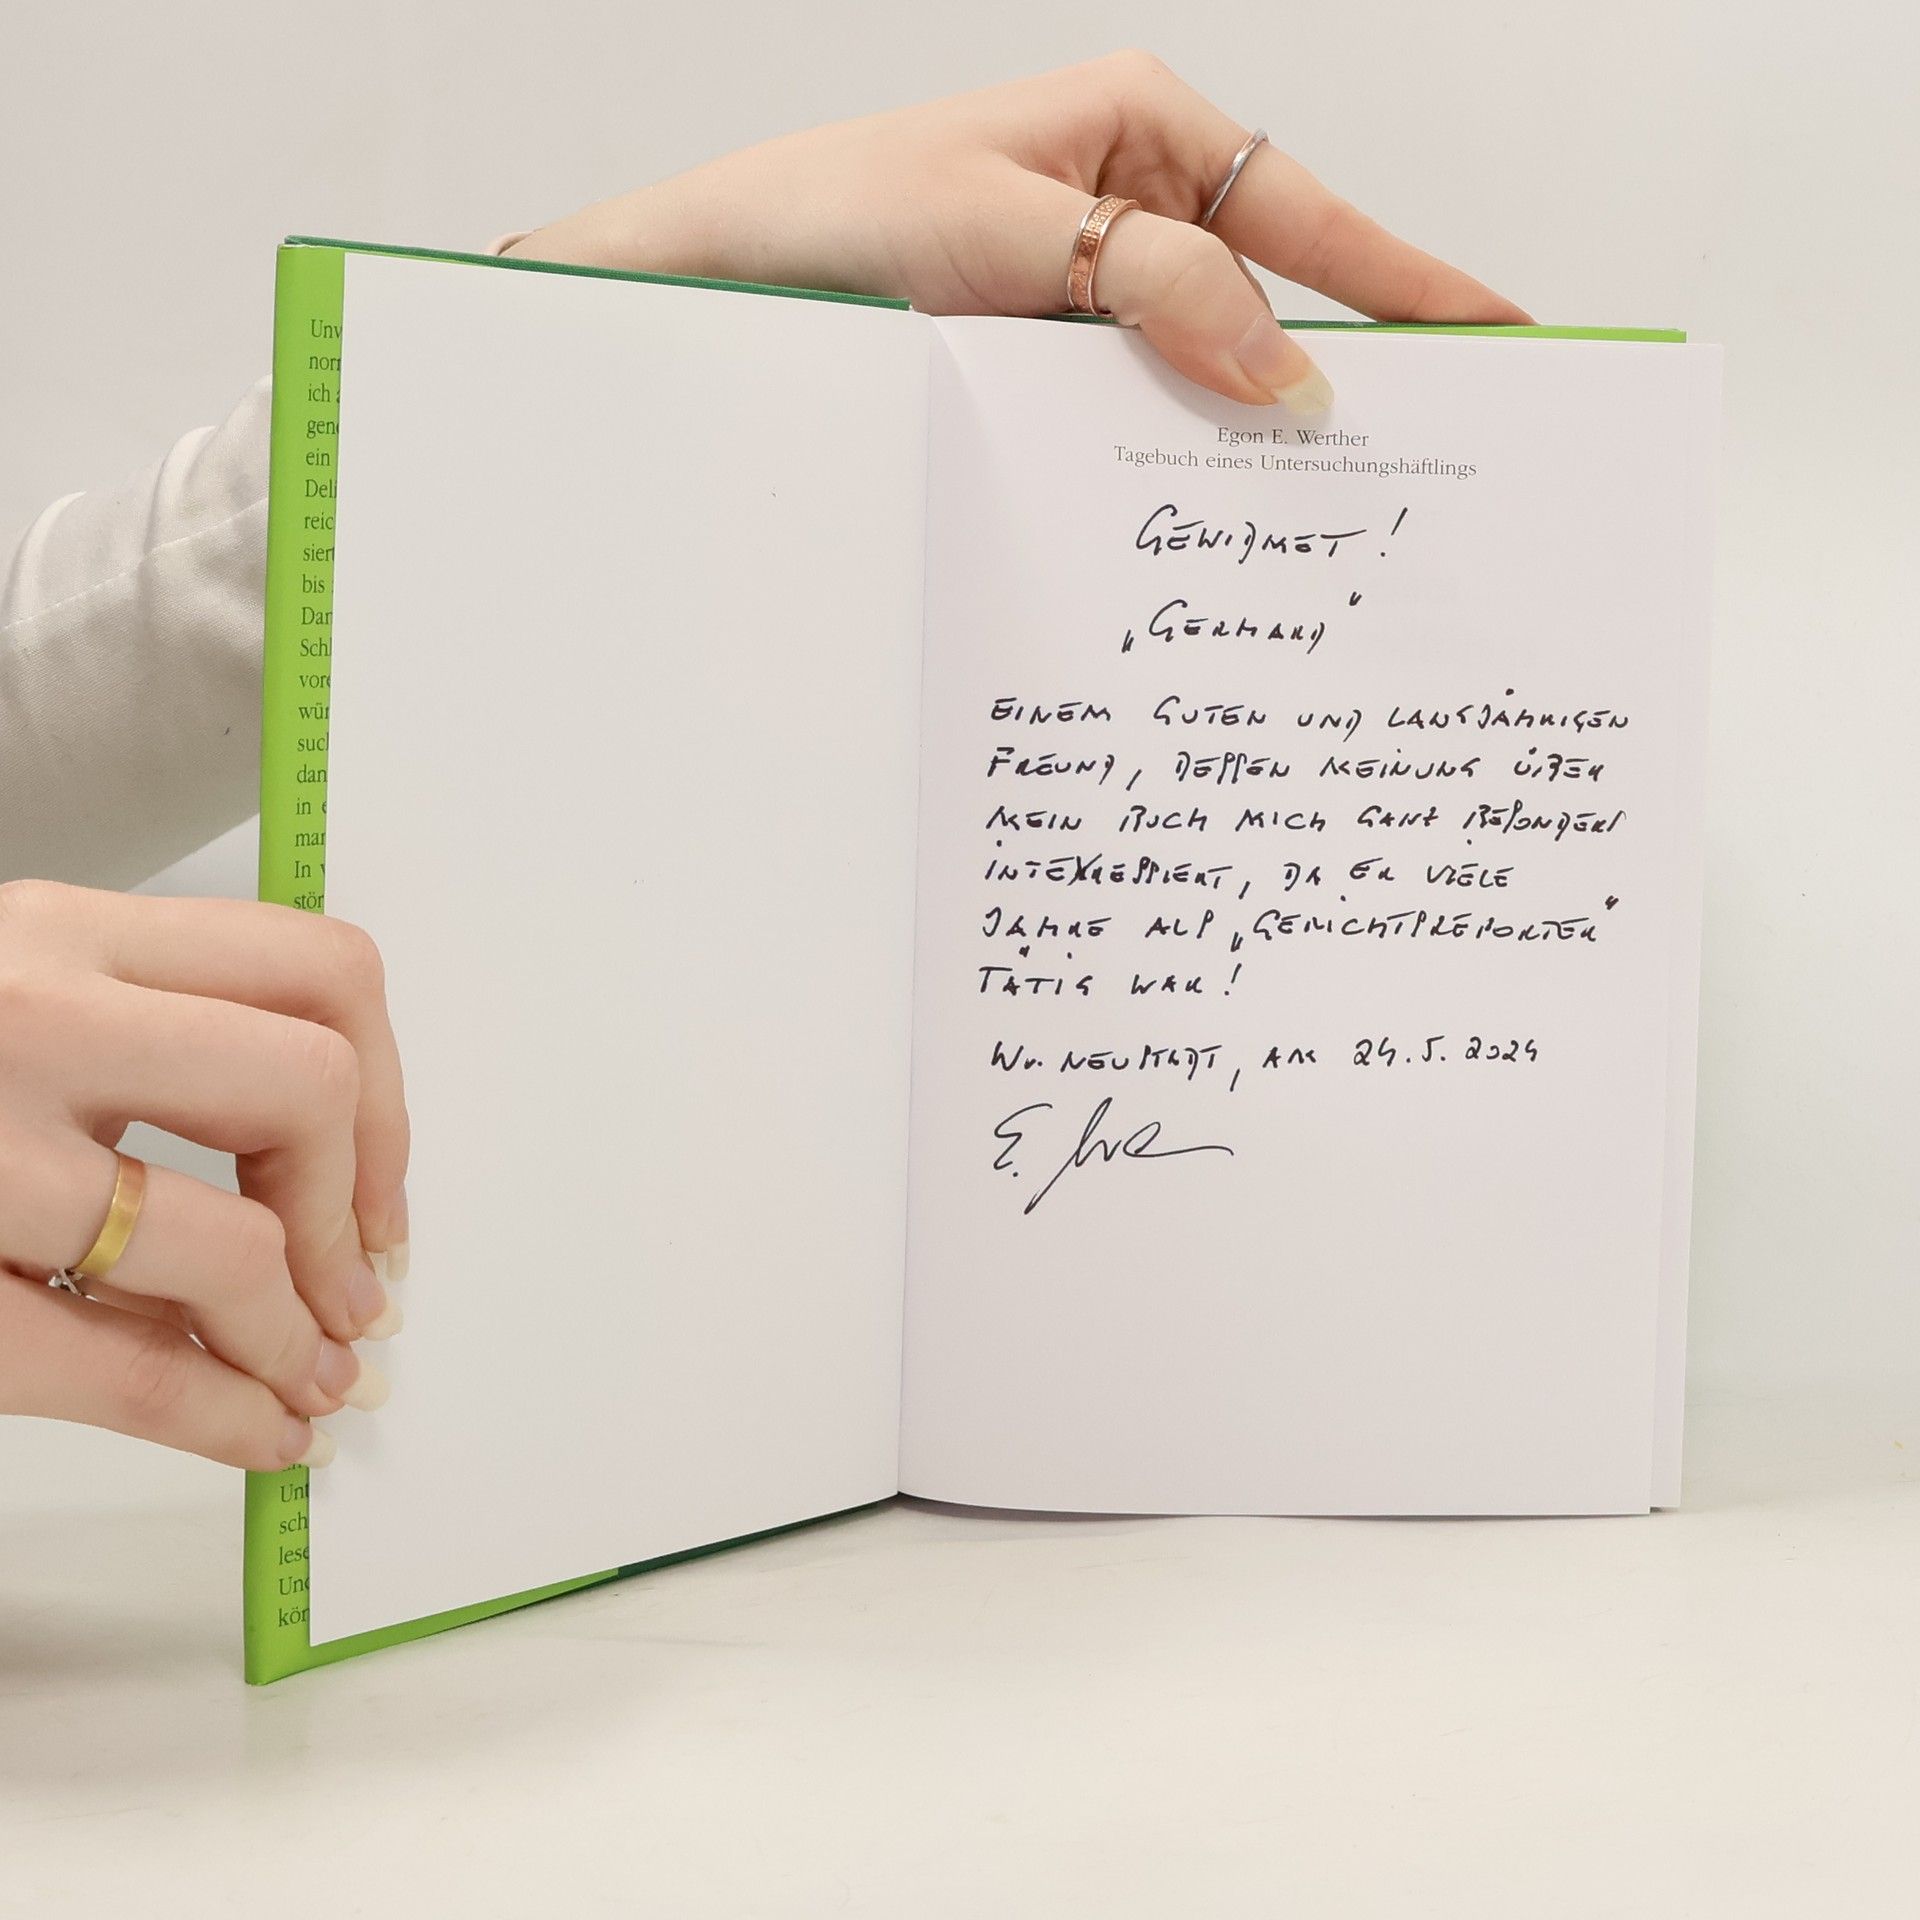 Unv
nor
ich
gen
ein
Deli
reic
siert
bis
Dar
Schl
vor
wür
such
dan
in
mar
In
stör
Unt
sch
lese
Und
kör
Egon E. Werther
Tagebuch eines Untersuchungshäftlings
GEWIDMET !
„GERHARD"
EINEM GUTEN UND LANGJÄHRIGEN
FREUND, DESSEN MEINUNG ÜBER
MEIN BUCH MICH GANZ BESONDERS
INTERESSIERT, DA ER VIELE
JAHRE ALS „GERICHTSREPORTER"
TÄTIG WAR !
Wr. NEUSTADT, AM 24.5.2024